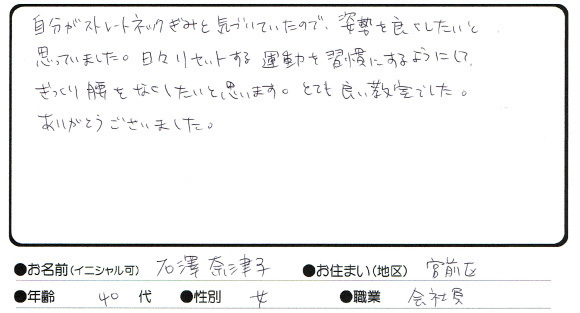 自分がストレートネックぎみと気づいていたので、姿勢を良くしたいと
思っていました。日々リセットする運動を習慣にするようにして、
ぎっくり腰をなくしたいと思います。とても良い教室でした。
ありがとうございました。
●お名前(イニシャル可) 石澤奈津子 ●お住まい(地区) 宮前区
●年齢 40 代 ●性別 女 ●職業 会社員